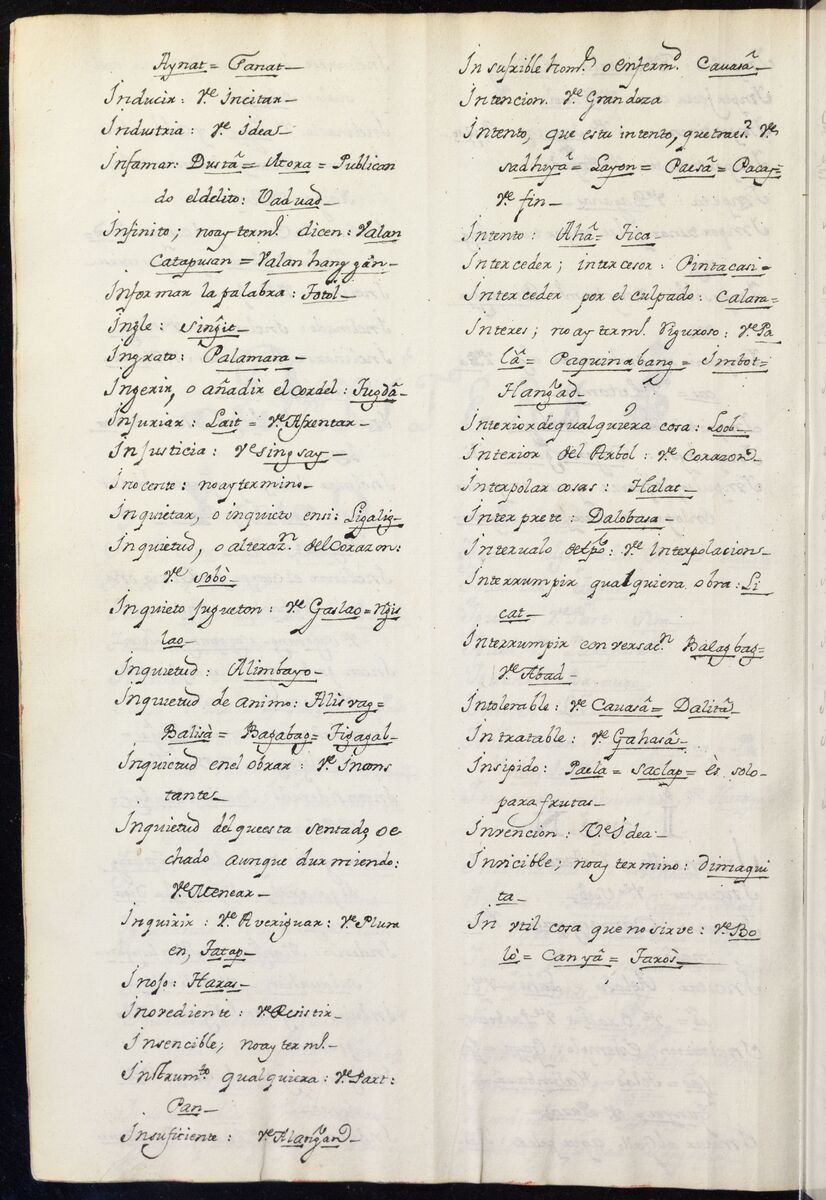 Aynat = Tanat
Inducir: Vᵉ Incitar
Industria: Vᵉ Ideas
Infamar: Dustâ = Atora = Publican
do el delito: Vaduad
Infinito; no ay termᵒ. dicen: Valan
Catapusan = Valan hang gân
Informar la palabra: Totol
Ingle: Singit
Ingrato: Palamara
Ingerir, o añadir el cordel: Tugdâ
Injuriar: Lait = Vᵉ Afrentar
Injusticia: Vᵉ singsay
Inocente: no ay termino
Inquietar, o inquieto en si: Ligalig
Inquietud, o alterazⁿ. del Corazon:
Vᵉ sobò
Inquieto jugueton: Vᵉ Gaslao = Ngis
lao
Inquietud: Alimbayo
Inquietud de animo: Alisvag =
Balisà = Bagabag = Tigagal
Inquietud en el obrar: Vᵉ Incons
tante
Inquietud del que esta sentado, o e
chado aunque durmiendo:
Vᵉ Menear
Inquirir: Vᵉ Averiguar: Vᵉ Plura
en, Tatap
Inojo: Haras
Inorediente: Vᵉ Resistir
Insencible; no ay termᵒ.
Instrumᵗᵒ qualquiera: Vᵉ Part:
Pan
Insuficiente: Vᵉ Alangand
Insufrible homᵉ. o enfermᵈ. Cauasâ
Intencion. Vᵉ Grandoza
Intento, que es tu intento, que traes? Vᵉ
sadhuyâ = Layon = Paesâ = Pacay =
Vᵉ fin
Intento: Ahâ = Tica
Interceder; intercesor: Pintacasi
Interceder por el culpado: Calara
Interes; no ay termᵒ. Riguroso: Vᵉ Pa
lâ = Paquinabang = Imbot =
Hangad
Interior de qualquiera cosa: Loob
Interior del Arbol: Vᵉ Corazon
Interpolar cosas: Halat
Interprete: Dalobasa
Interualo de tpo: Vᵉ Interpolacion
Interrumpir qualquiera obra: Li
cat
Interrumpir conversacⁿ. Balagbag =
Vᵉ Abad
Intolerable: Vᵉ Cauasâ = Dalitâ
Intratable: Vᵉ Gahasâ
Insipido: Paela = Saclap = ès solo
para frutas
Invencion: Vᵉ Idea
Invicible; no ay termino: dimaqui
ta
Invtil cosa que no sirve: Vᵉ Bo
lò = Canyâ = Taròs